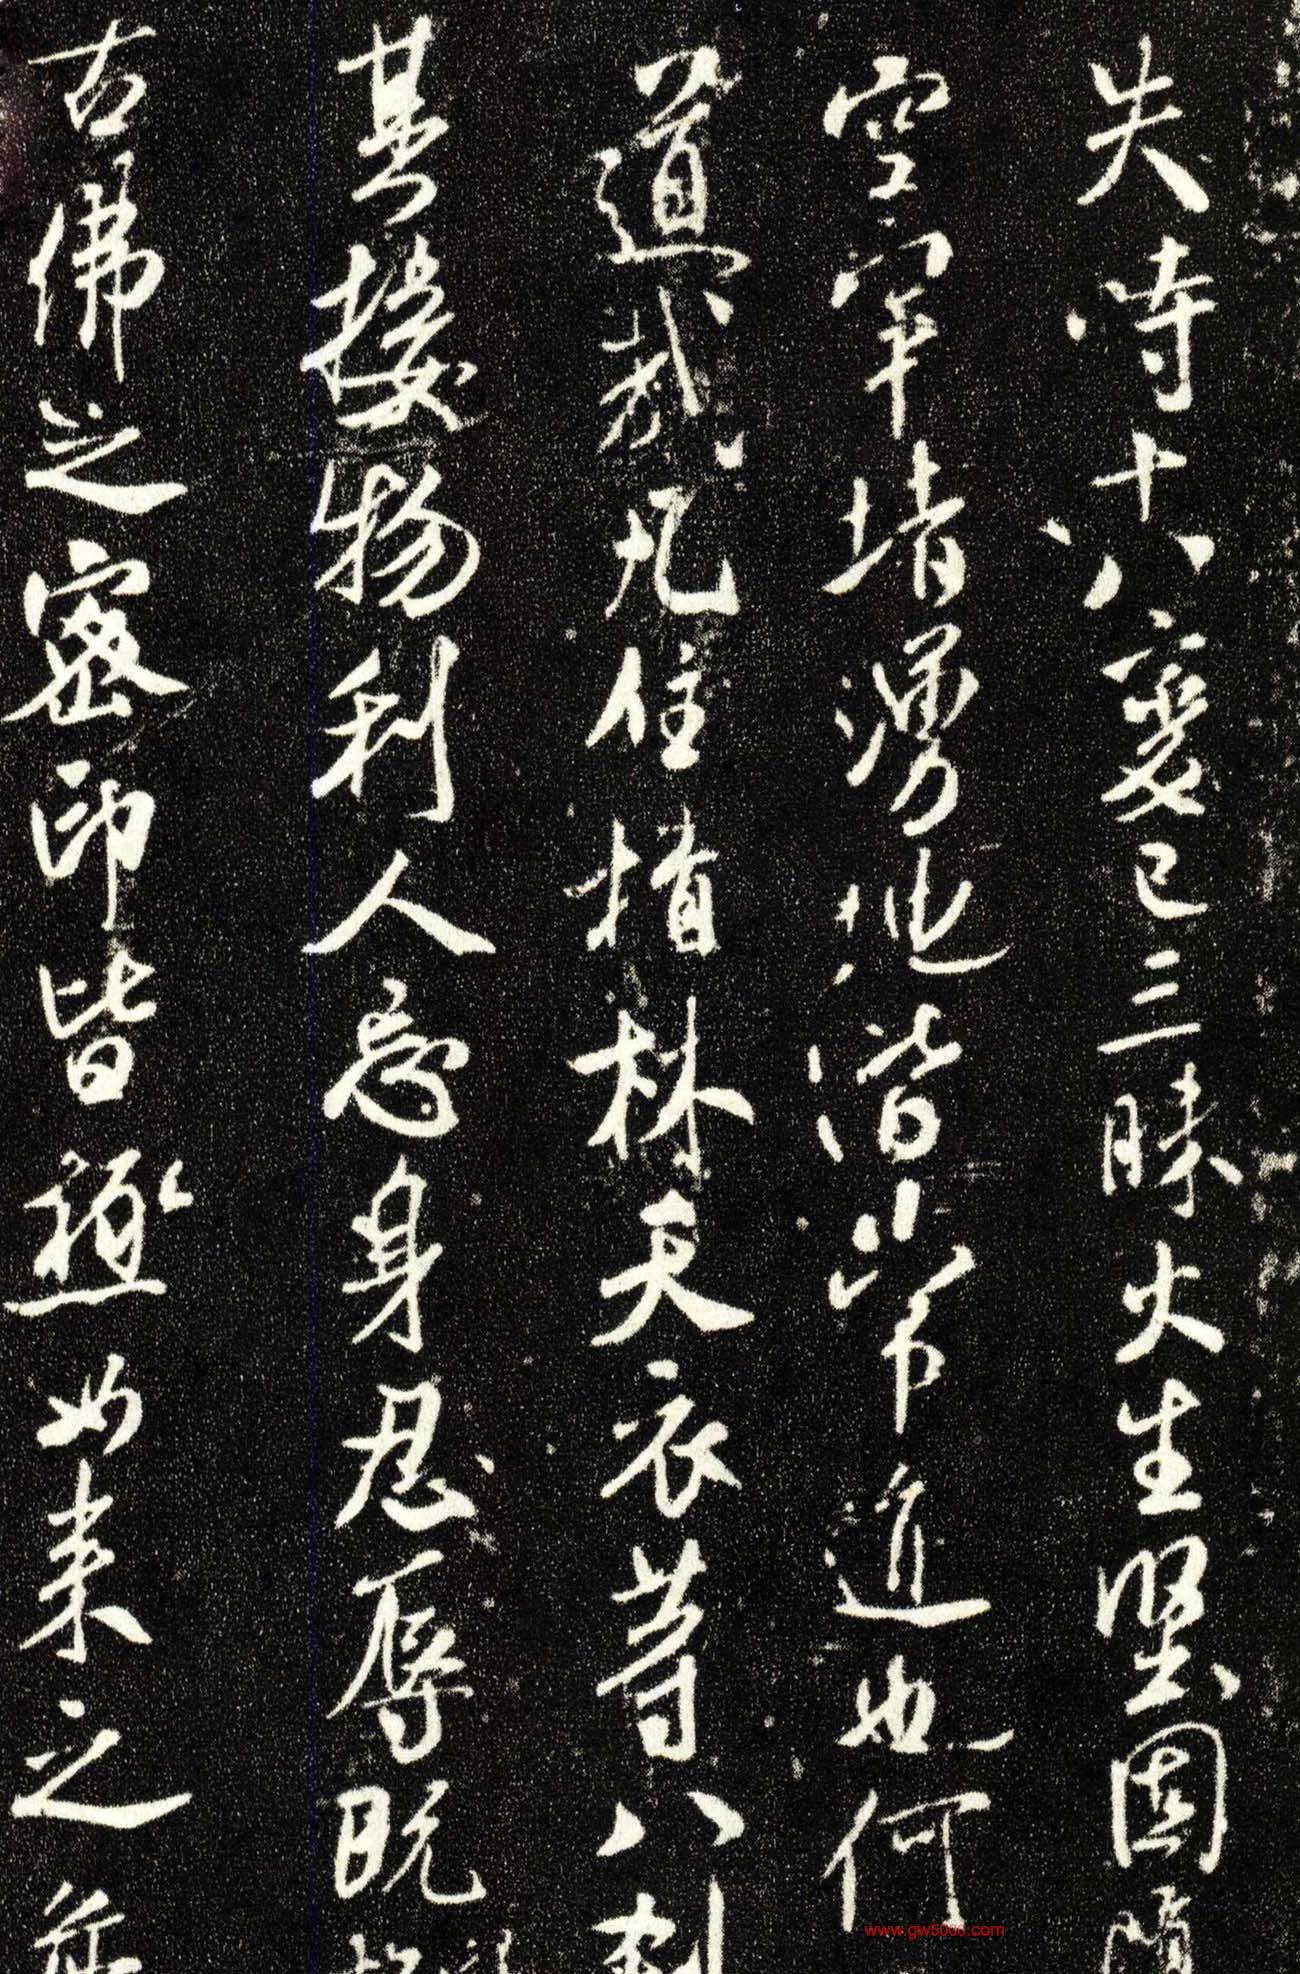 失時十八變已三昧火生堅固
空窣堵湧地諧常道也何
道哉凡住植林天衣等八刹
其接物利人忘身忍辱既
古佛之密印皆極如來之